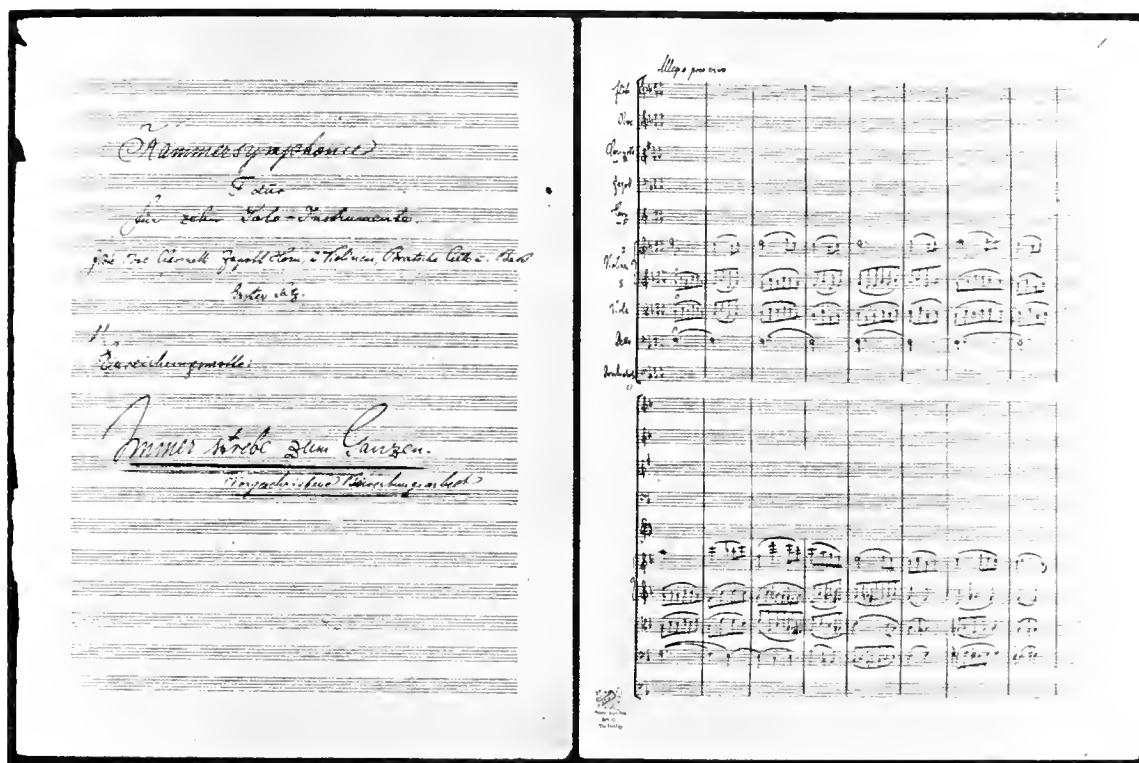 Kammersymphonie
F dur
für zehn Solo-Instrumente
Flöte Oboe Clarinette Fagott Horn, 2 Violinen, Bratsche Cello u.
Erster Satz.
Einreichungsmotto:
Immer strebe zum Ganzen.
1
Allegro
Flöte
Oboe
Fagott
Horn
Violine
Viola
Cello
Kontrabass